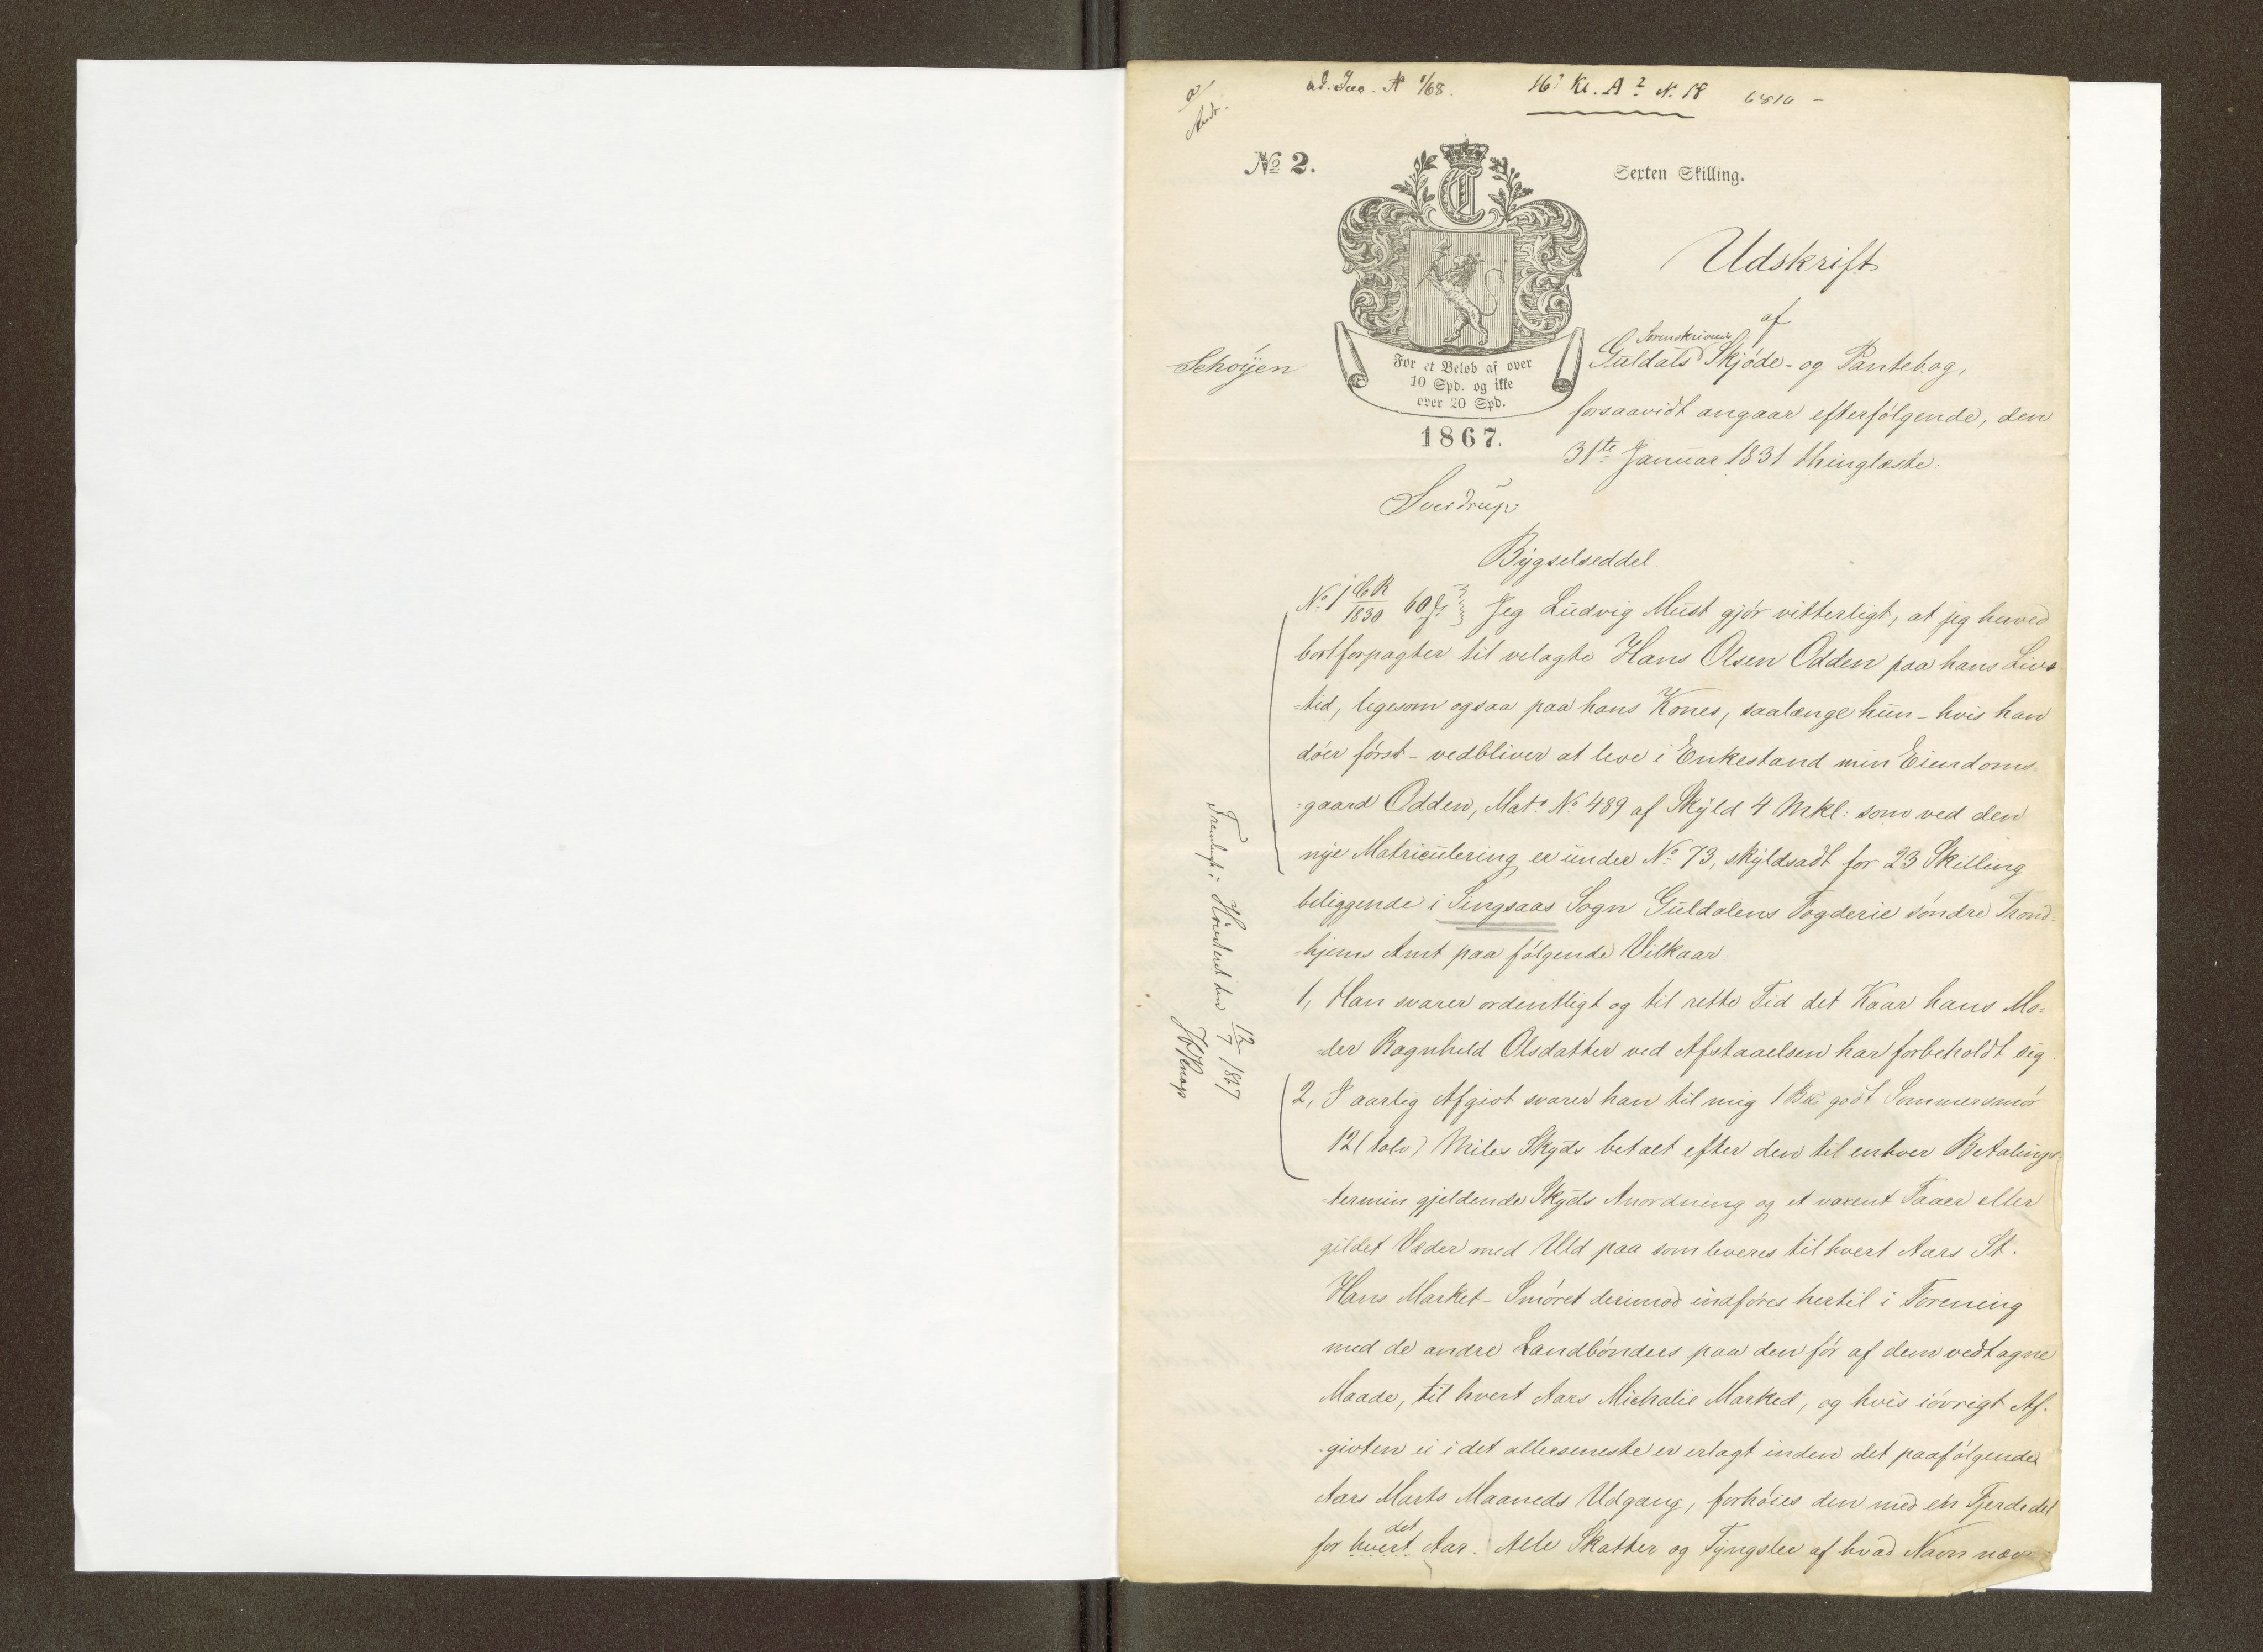 ad. Jno. N 1/68. 16? Kl. A? N. 18 6810 -
№ 2.
Sexten Skilling.
Udskrift
af
Sorenskriveri
Guldals Skjöde- og Pantebog,
Schøyen
For et Beløb af over
10 Spd. og ikke
over 20 Spd.
1867.
forsaavidt angaar efterfölgende, den
31te Januar 1831 thinglæste:
Sverdrup
Bygselseddel.
No 1 CR 1830 60 Jeg Ludvig Must gjör vitterligt, at jeg herved
bortforpagter til velagte Hans Olsen Odden paa hans Livs-
=tid, ligesom ogsaa paa hans Kones, saalænge hun - hvis han
döer först - vedbliver at leve i Enkestand min Eiendoms-
=gaard Odden, Mat: No 489 af Skyld 4 Mkl: som ved den
nye Matriculering er under No 73, skyldsadt for 23 Skilling
beliggende i Singsaas Sogn Guldalens Fogderie söndre Trond-
-hjems Amt paa fölgende Vilkaar:
1, Han svarer ordentligt og til rette Tid det Kaar hans Mo-
-der Ragnhild Olsdatter ved Afstaaelsen har forbeholdt sig
2, I aarlig Afgivt svarer han til mig 1 godt Sommersmör
12 (tolv) Miles Skyds betalt efter den til enhver Betalings-
-termin gjeldende Skyds Anordning og et voxent Faaer eller
gildet Væder med Uld paa som leveres til hvert Aars St.
Hans Market - Smöret derimod indföres hertil i Forening
med de andre Landbönders paa den för af dem vedtagne
Maade, til hvert Aars Michalie Marked, og hvis iövrigt Af-
-givten ei i det allerseneste er erlagt inden det paafölgende
Aars Marts Maaneds Udgang, forhöies den med én Fjerdedel
det
for hvert Aar. Alle Skatter og Tyngsler af hvad Navn næv-
Fremlagt i Hovedret den 12/7 1867